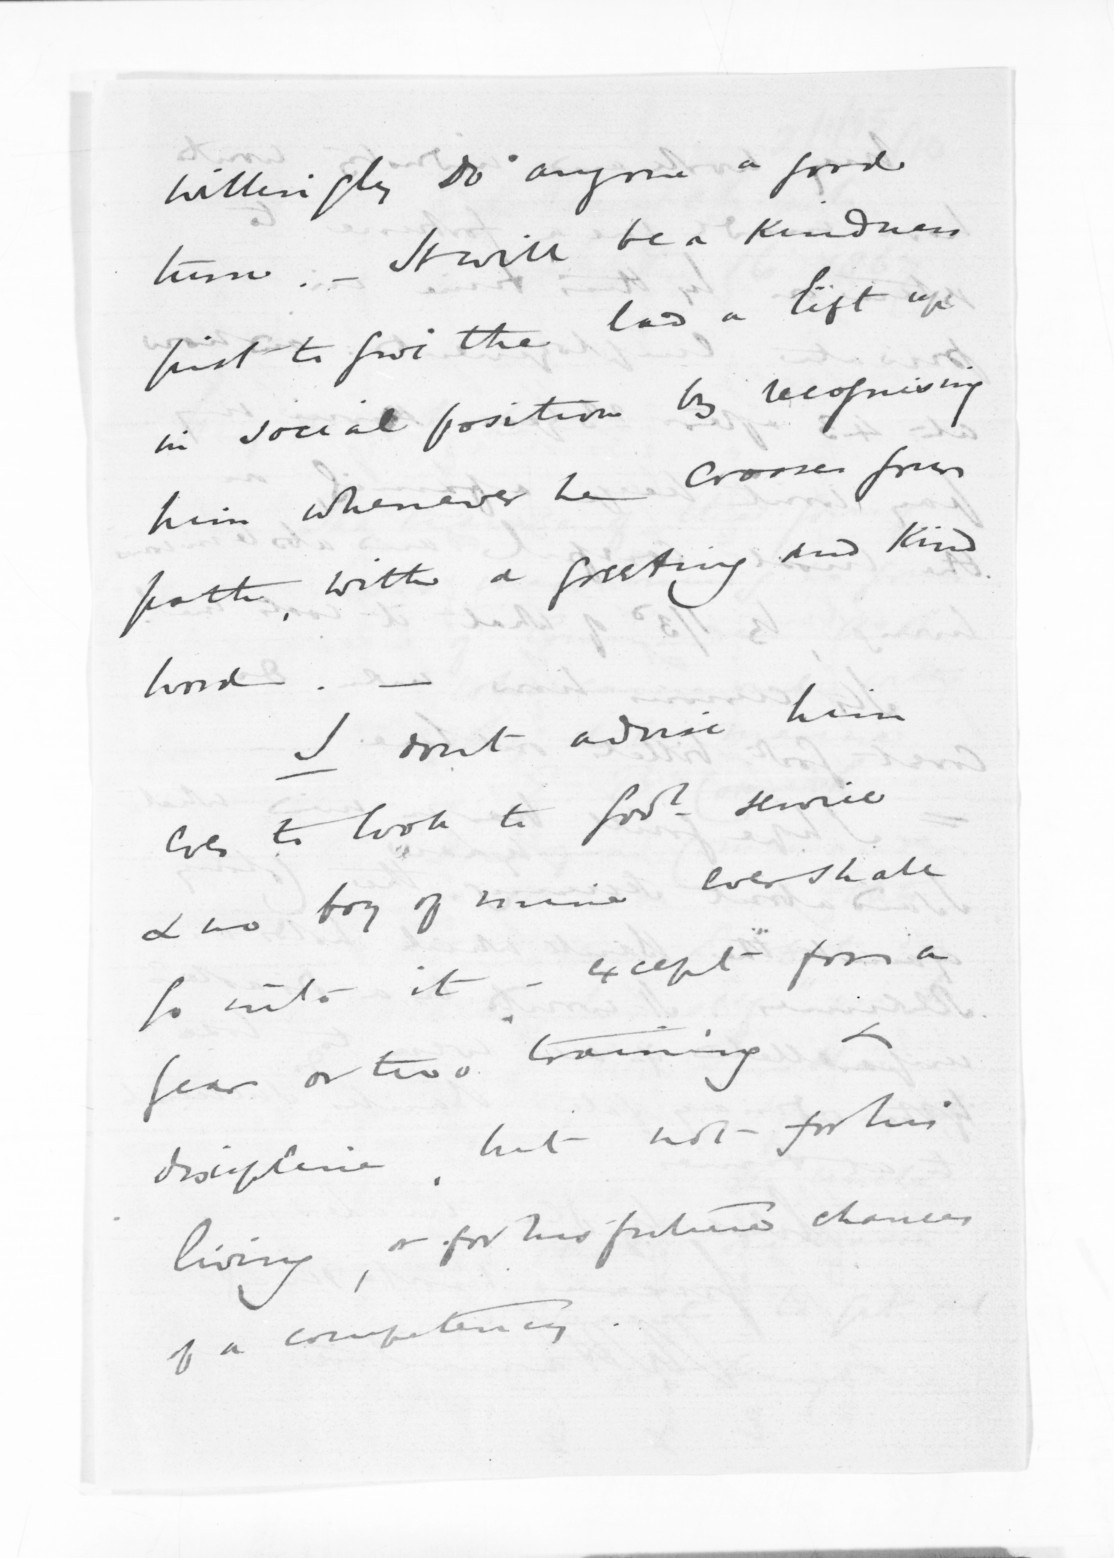 willingly do anyone a good
turn. - It will be a kindness
just to give the lad a lift up
in social position by recognising
him whenever he crosses your
path, with a greeting and kind
word. -
I dont advise him
ever to look to Govt service
& no boy of mine ever shall
go into it - except for a
year or two training &
discipline, but not for his
living, or for his future chances
of a competency.